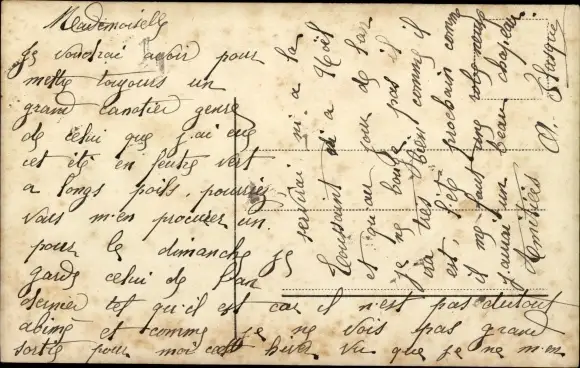 Mademoiselle
Je voudrai avoir pour
mettre toujours un
grand canotier genre
de celui que j'ai eue
cet été en feutre vert
a longs poils, pourriez
vous m'en procurer un
pour le dimanche je
garde celui de l'an
dernier tel qu'il est car il n'est pas dutout
abimé et comme je ne vois pas grand
sortie pour moi cet hiver vu que je ne m'en
servirai ni a la
Toussaint ni a Noël
et qu'au jour de l'an
je ne bouge pas il
ira tres bien comme il
est, l'été prochain comme
il me faut une robe
j'aurai un beau chapeau.
Amitiés